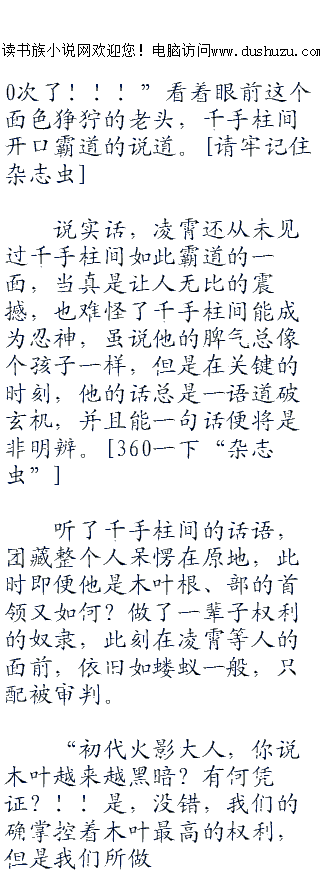 读书族小说网欢迎您！电脑访问www.dushuzu.com
0次了！！！”看着眼前这个
面色狰狞的老头，千手柱间
开口霸道的说道。[请牢记住
杂志虫]
说实话，凌霄还从未见
过千手柱间如此霸道的一
面，当真是让人无比的震
撼，也难怪了千手柱间能成
为忍神，虽说他的脾气总像
个孩子一样，但是在关键的
时刻，他的话总是一语道破
玄机，并且能一句话便将是
非明辨。[360一下“杂志
虫”]
听了千手柱间的话语，
团藏整个人呆愣在原地，此
时即便他是木叶根、部的首
领又如何？做了一辈子权利
的奴隶，此刻在凌霄等人的
面前，依旧如蝼蚁一般，只
配被审判。
“初代火影大人，你说
木叶越来越黑暗？有何凭
证？！！是，没错，我们的
确掌控着木叶最高的权利，
但是我们所做